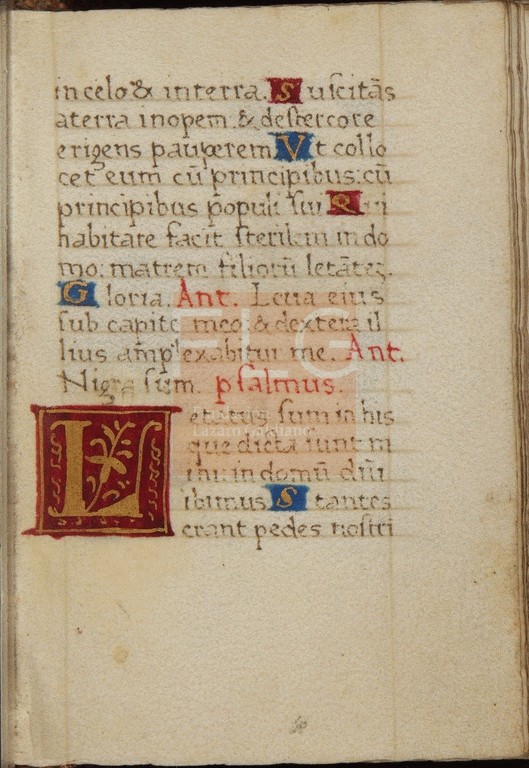 in celo & in terra. Suscitãs
a terra inopem. & de stercore
erigens pauperem. Vt collo
cet eum cũ principibus: cũ
principibus populi sui Qui
habitare facit sterilem in do
mo: matrem filiorũ letãtẽ.
Gloria. Ant. Leua eius
sub capite meo: & dextera il
lius amplexabitur me. Ant.
Nigra sum. psalmus.
Letatus sum in his
que dicta sunt m
ihi: in domũ dñi
ibimus Stantes
erant pedes nostri
FLG